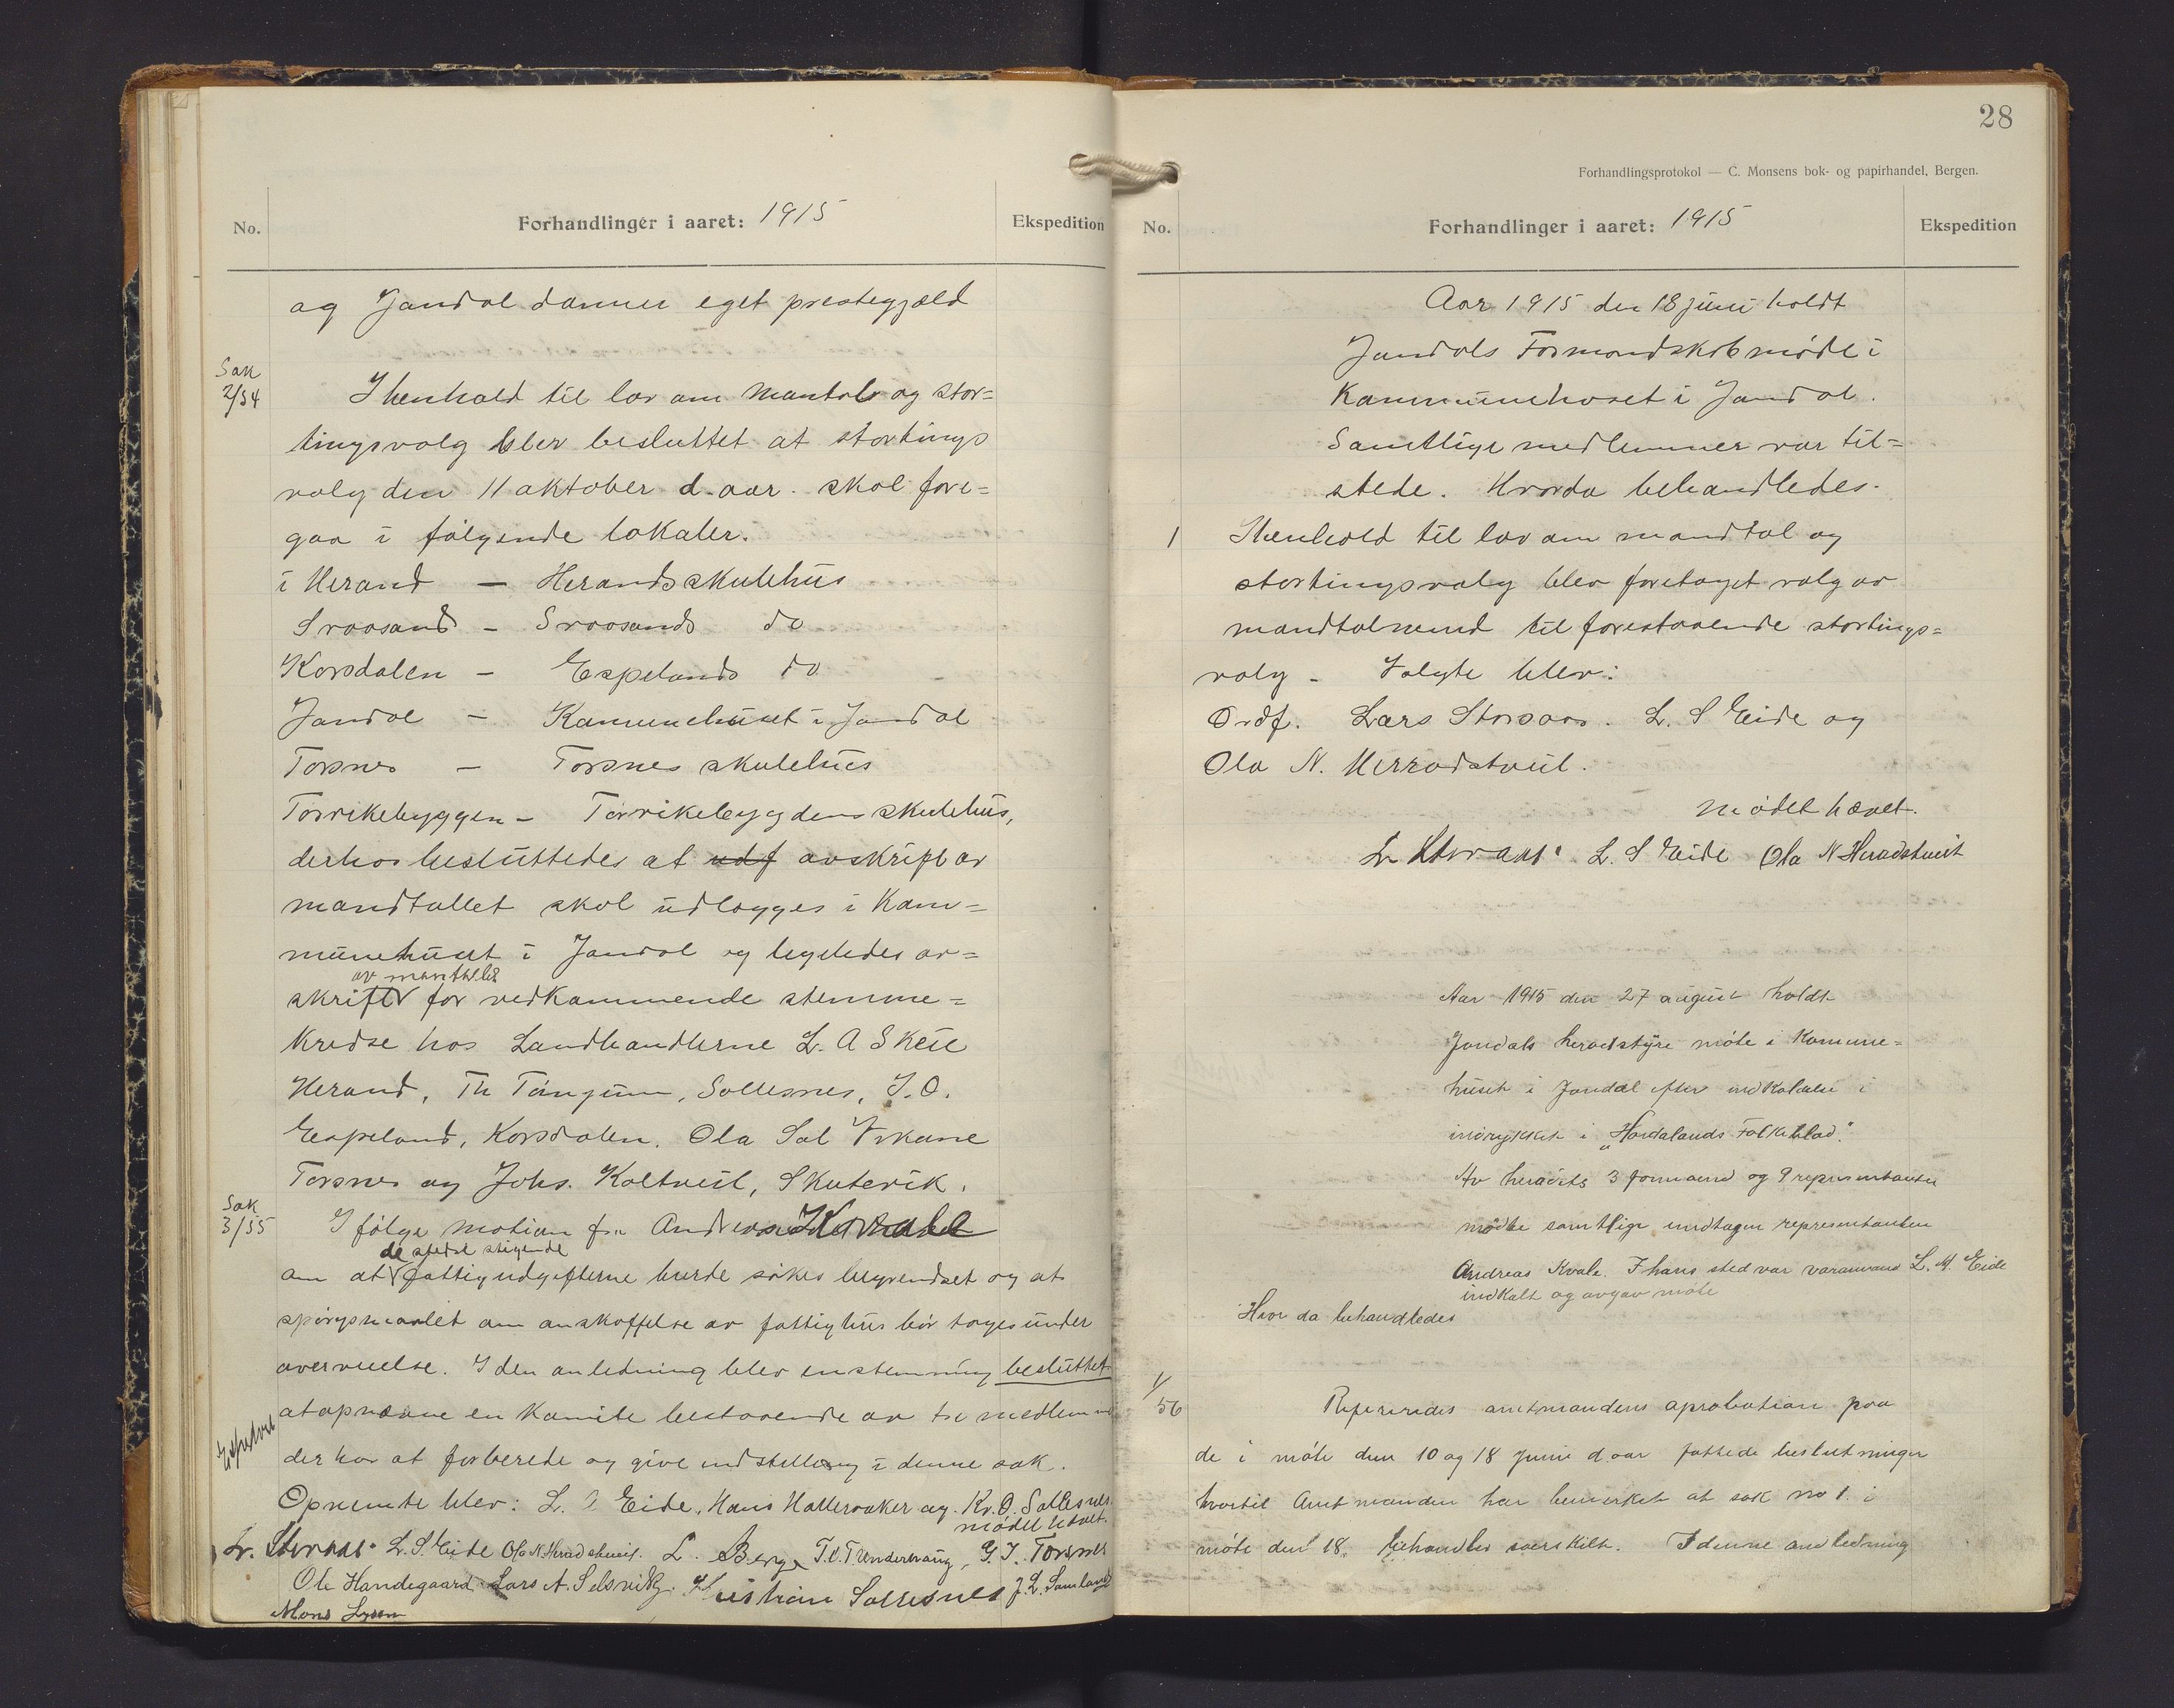 No.
Forhandlinger i aaret: 1915
Ekspedition
og Jondal danner eget prestegjæld
Sak
2/54
I henhold til lov om mantals og stor=
tingsvalg blev besluttet at stortings
valg den 11 oktober d. aar. skal fore=
gaa i følgende lokaler.
i Herand — Herands skulehus
Svaasand — Svaasands do
Korsdalen — Espelands do
Jondal — Kommunehuset i Jondal
Torsnes — Torsnes skulehus
Tørvikebyggen — Tørvikebygdens skulehus,
derhos besluttedes at udf avskrift av
mandtallet skal udlægges i Kom=
munehuset i Jondal og ligeledes av=
av mantallet
skrift for vedkommende stemme=
kredse hos Landhandlerne L. A Skeie
Herand, Th Tangum, Sollesnes, J. O.
Espeland, Korsdalen. Ola Sal Virkane
Torsnes og Johs. Koltveit, Skutevik.
Sak
3/55
I følge motion fra Andreas Kvale
de stedse stigende
om at fattigudgifterne burde søkes begrendset og at
spørgsmaalet om anskaffelse av fattighus bør tages under
overveielse. I den anledning blev enstemmig besluttet
at opnævne en Komite bestaaende av tre medlemmer
der har at forberede og give indstilling i denne sak.
Opnemte blev: L. S Eide, Hans Halleraaker og Kr. O. Sollesnes.
mødet hævet.
Lr. Storaas. L. S. Eide Ola N. Heradstveit. L. Berge T. O. Trondervang, G. J. Torsnes
Ole Handegaard Lars A. Selsvik Kristian Sollesnes J. L. Samland
Mons Lysen
28
Forhandlingsprotokol — C. Monsens bok- og papirhandel, Bergen.
No.
Forhandlinger i aaret: 1915
Ekspedition
Aar 1915 den 18 juni holdt
Jondals Formandskabmøde i
Kommunehuset i Jondal.
Samtlige medlemmer var til=
stede. Hvorda behandledes.
1
I henhold til lov om mandtal og
stortingsvalg blev foretaget valg av
mandtalnemd til forestaaende stortings=
valg — Valgte blev:
Ordf. Lars Storaas. L. S Eide og
Ola N. Herradstveit.
mødet hævet.
Lr Storaas. L. S Eide Ola N Heradstveit
Aar 1915 den 27 august holdt
Jondals heradstyre møte i Kommune=
huset i Jondal efter indkaldelse i
indrykket i „Hordalands Folkeblad."
Av heradets 3 formænd og 9 representanter
mødte samtlige undtagen representanten
Andreas Kvale. I hans sted var varamand L. M. Eide
indkalt og avgav møte
Hvor da behandledes
1/
56
Refereredes amtmandens aprobation paa
de i møte den 10 og 18 juni d. aar fattede beslutninger
hvortil Amtmanden har bemerket at sak no 1. i
møte den 18. behandles særskilt. I denne anledning